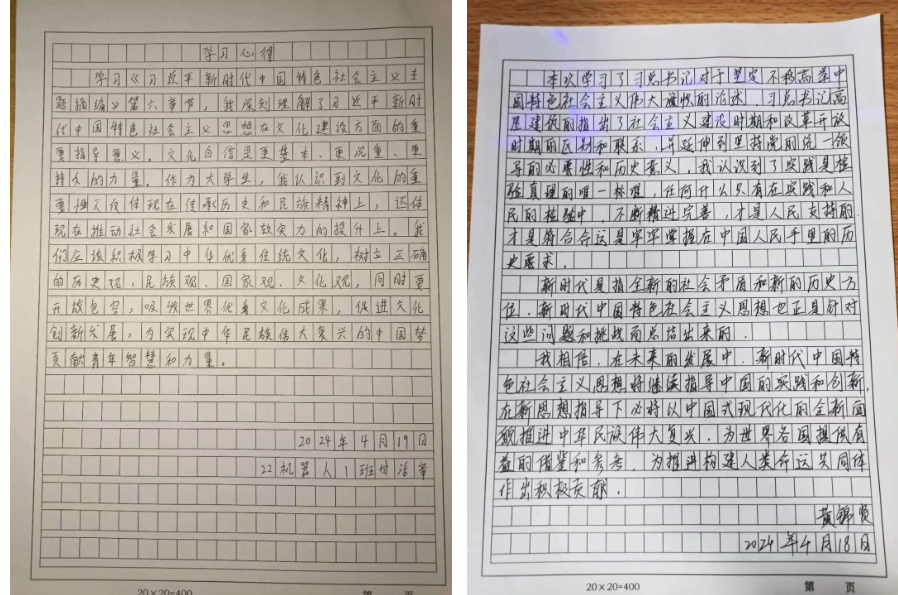 学习心得
学习《习近平新时代中国特色社会主义专
题摘编》第六章节，我深刻理解了习近平新时
代中国特色社会主义思想在文化建设方面的重
要指导意义。文化自信是更基本、更深重、更
持久的力量。作为大学生，我认识到文化的重
要性不仅体现在传承历史和民族精神上，还体
现在推动社会发展和国家软实力的提升上。我
们应该积极学习中华优秀传统文化，树立正确
的历史观、民族观、国家观、文化观，同时要
开放包容，吸收世界优秀文化成果，促进文化
创新发展，为实现中华民族伟大复兴的中国梦
贡献青年智慧和力量。
2024年4月19日
22机器人1班
20×20=400
第
本次学习了习总书记对于坚定不移高举中
国特色社会主义伟大旗帜的论述，习总书记高
屋建瓴的指出了社会主义建设时期和改革开放
时期的区别和联系，并延伸到坚持党的统一领
导的必要性和历史意义，我认识到了实践是检
验真理的唯一标准，任何什么只有在实践和人
民的检验中，不断精进完善，才是人民支持的
才是符合命运是牢牢掌握在中国人民手里的历
史要求．
新时代是指全新的社会矛盾和新的历史方
位．新时代中国特色社会主义思想也正是针对
这些问题和挑战而总结出来的．
我相信，在未来的发展中．新时代中国特
色社会主义思想将继续指导中国的实践和创新，
在新思想指导下必将以中国式现代化的全新面
貌推进中华民族伟大复兴．为世界各国提供有
益的借鉴和参考，为推进构建人类命运共同体
作出积极贡献．
黄锦贤
2024年4月18日
20×20=400
第 页